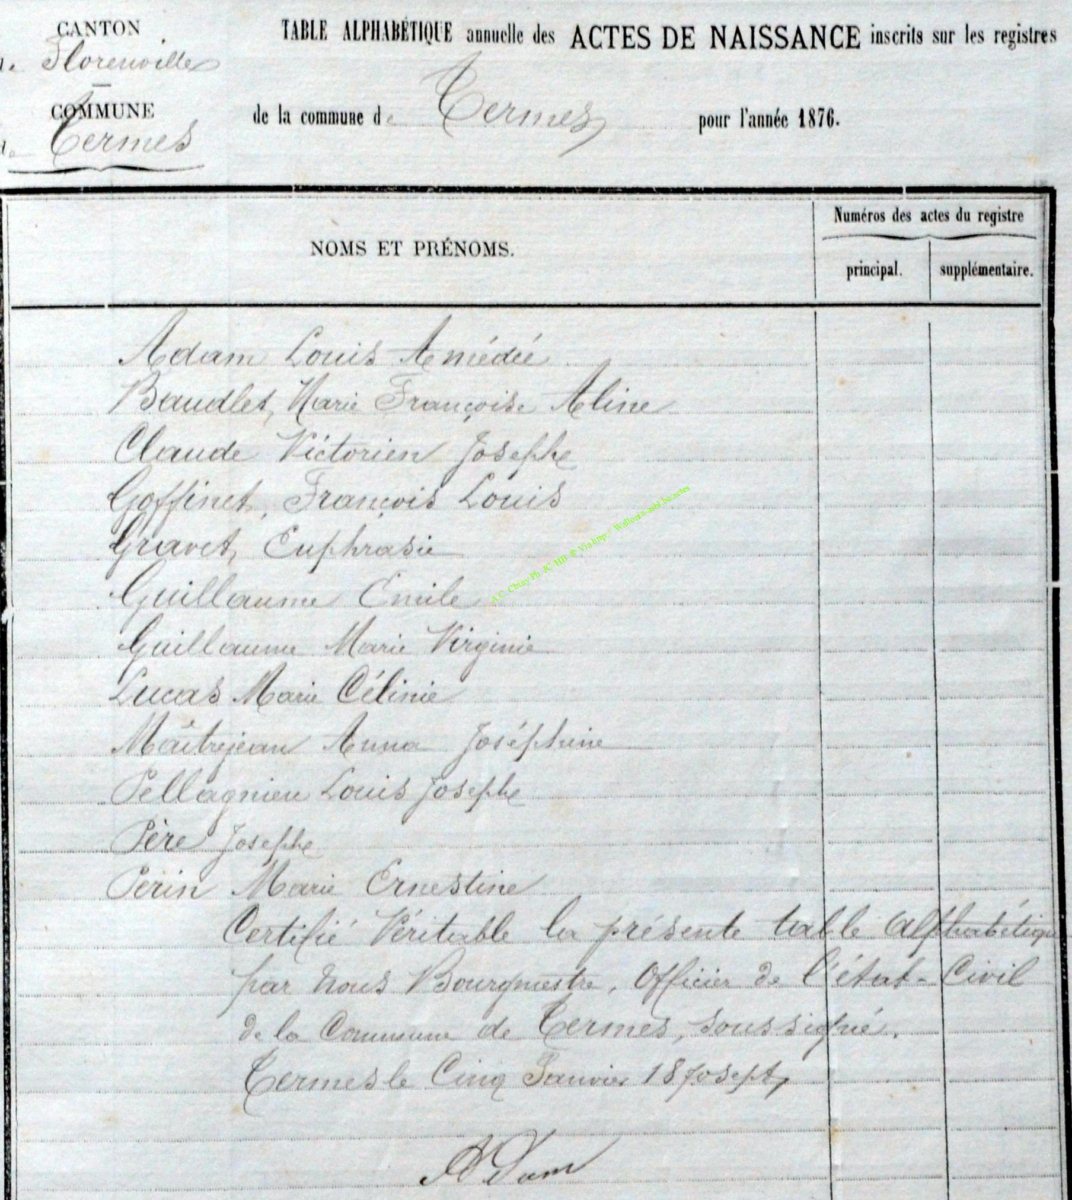 CANTON
de Florenville
COMMUNE
de Termes
TABLE ALPHABÉTIQUE annuelle des ACTES DE NAISSANCE inscrits sur les registres
de la commune de Termes pour l'année 1876.
NOMS ET PRÉNOMS.
Numéros des actes du registre
principal.
supplémentaire.
Adam Louis Amédée
Baudlet, Marie Françoise Aline
Claude Victorien Josephe
Goffinet, François Louis
Gravet, Euphrasie
Guillaume Emile
Guillaume Marie Virginie
Lucas Marie Célinie
Maîtrejean Anna Joséphine
Pellagnieu Louis Josephe
Père Josephe
Perin Marie Ernestine
Certifié Véritable la présente table alphabétique
par nous Bourgmestre, Officier de l'état-Civil
de la Commune de Termes, soussigné.
Termes le Cinq Janvier 18 70 sept,
Adam